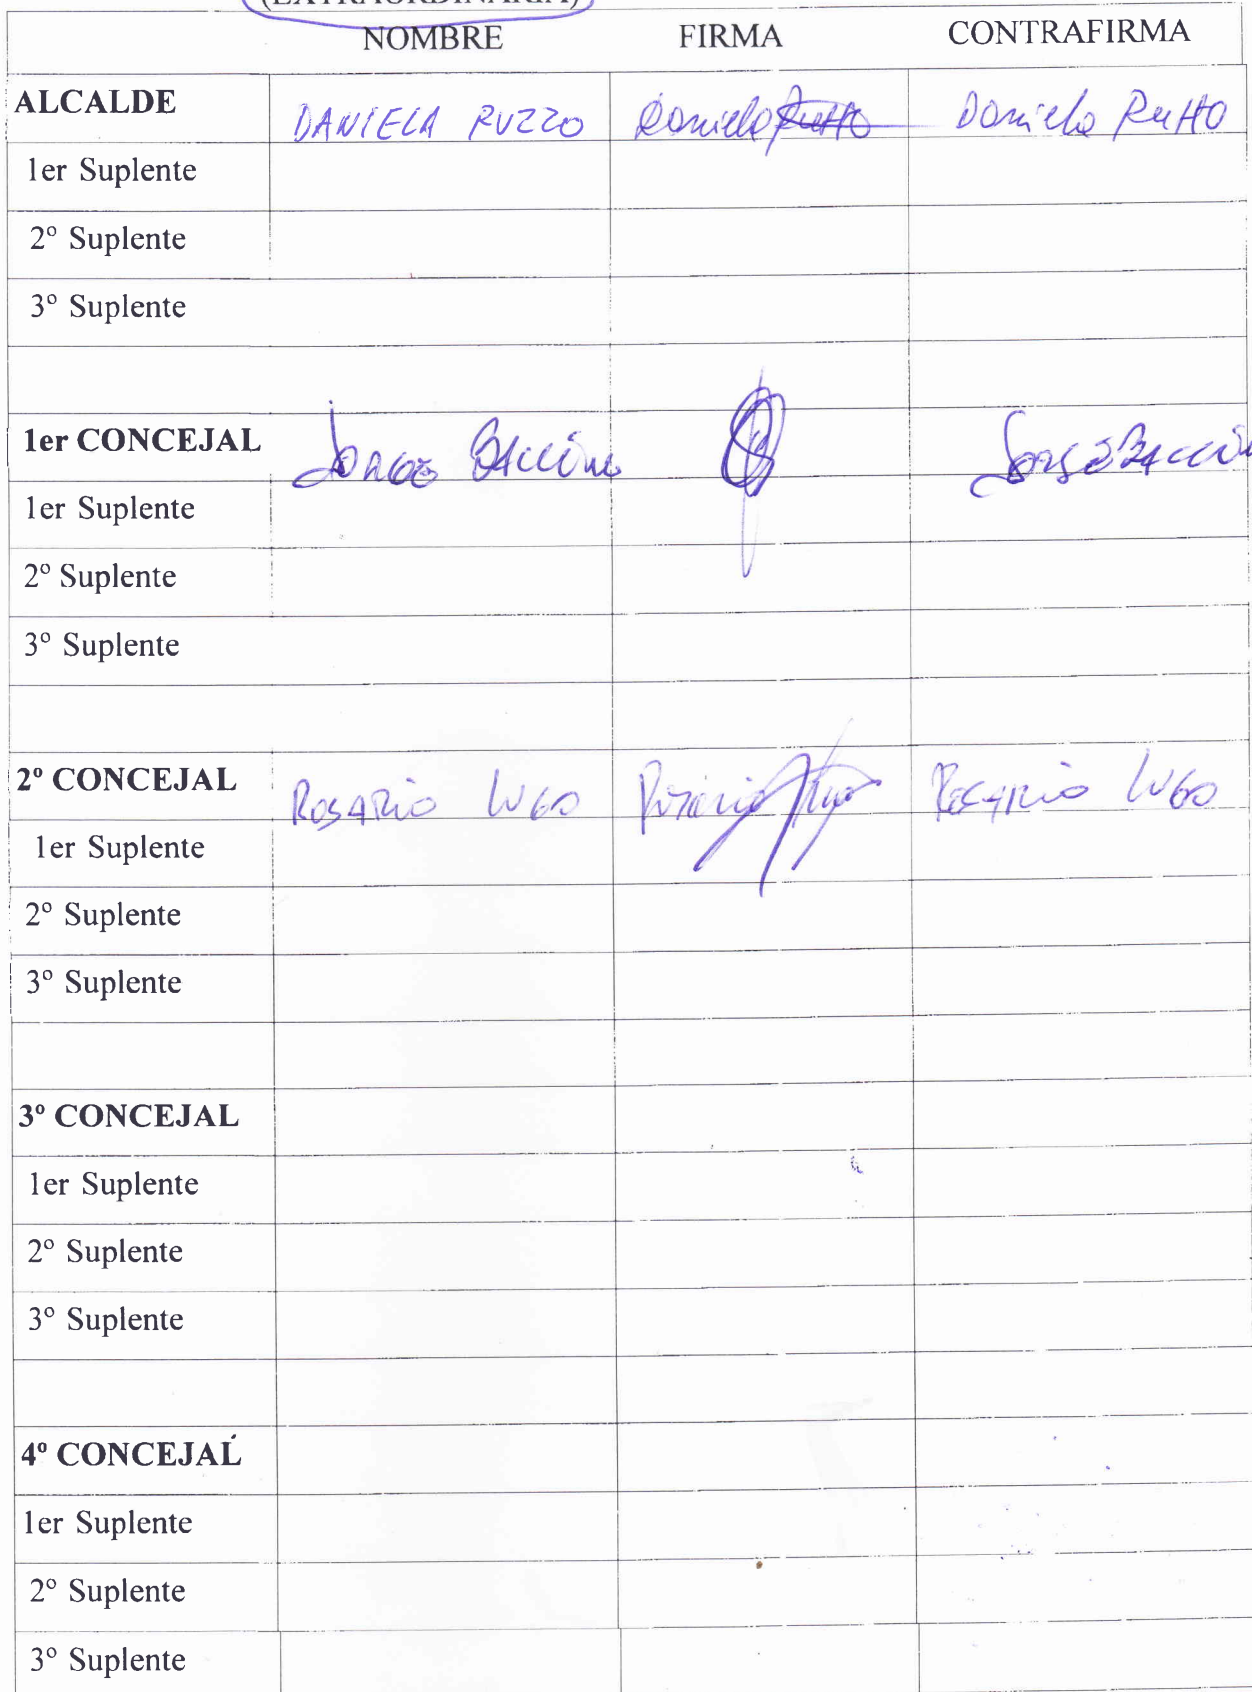 (EXTRAORDINARIA)
NOMBRE FIRMA CONTRAFIRMA
ALCALDE DANIELA RUZZO Daniela Ruzzo Daniela Ruzzo
1er Suplente
2º Suplente
3º Suplente
1er CONCEJAL Jorge Baccino Jorge Baccin
1er Suplente
2º Suplente
3º Suplente
2º CONCEJAL ROSARIO LUGO Rosario Lugo ROSARIO LUGO
1er Suplente
2º Suplente
3º Suplente
3º CONCEJAL
1er Suplente
2º Suplente
3º Suplente
4º CONCEJAL
1er Suplente
2º Suplente
3º Suplente